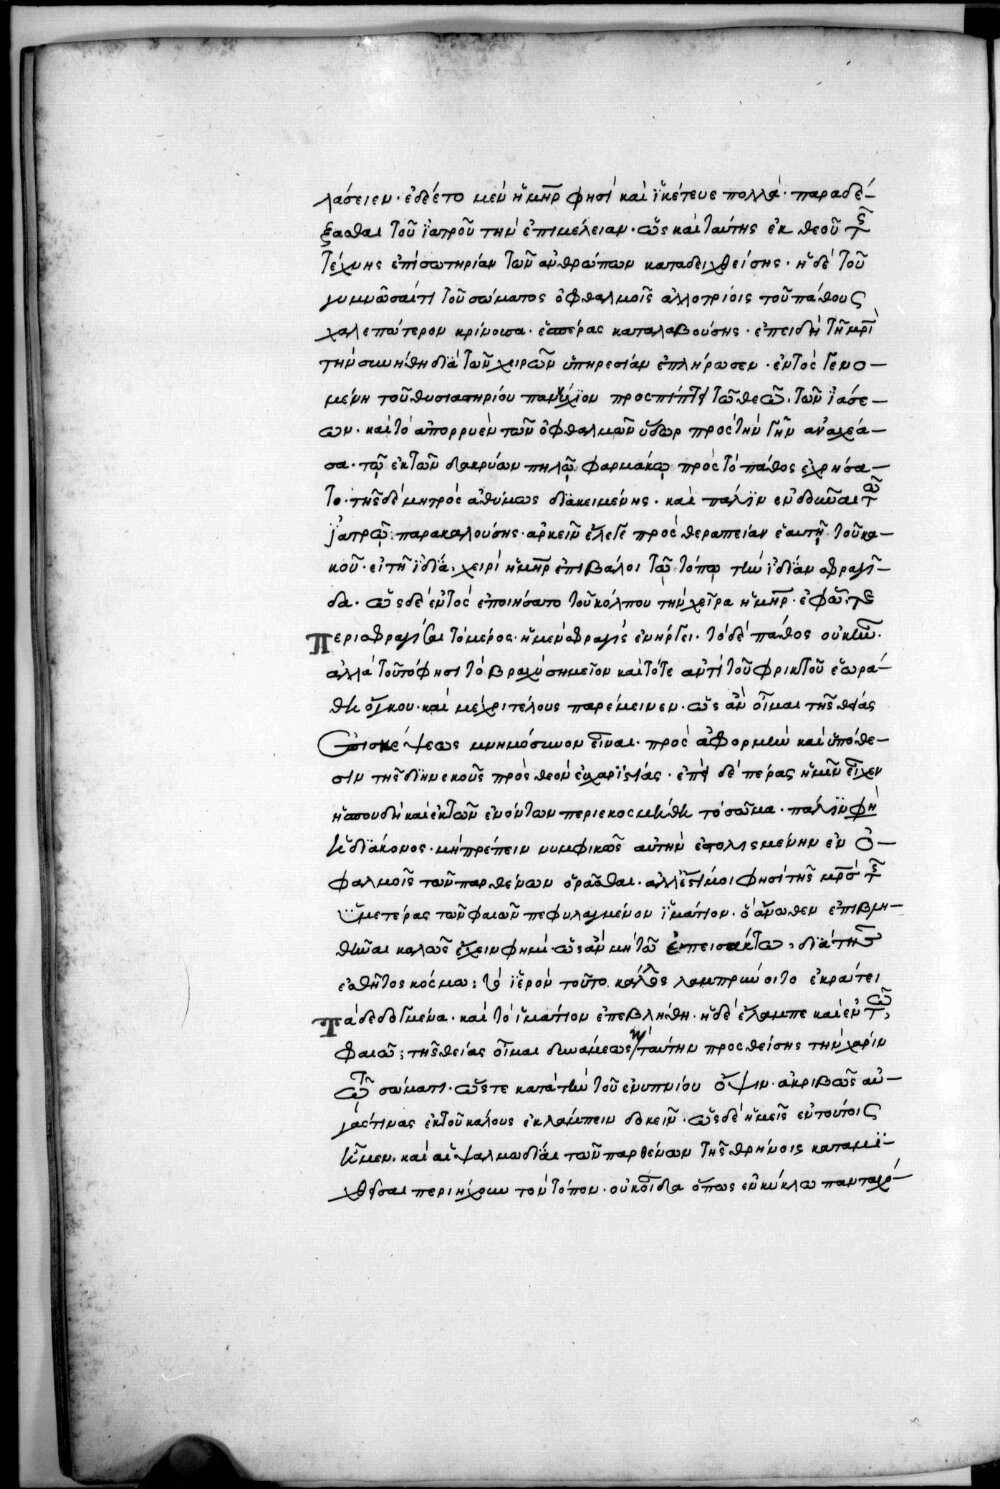 λάσειεν· ἐδέετο μὲν ἡ μὴρ φησὶ καὶ ἱκέτευε πολλὰ· παραδέ-
ξασθαι τοῦ ἰατροῦ τὴν ἐπιμέλειαν· ὡς καὶ ταύτης ἐκ θεοῦ τῆς
τέχνης ἐπὶ σωτηρίαν τῶν ἀνθρώπων καταδειχθείσης· ἡ δὲ τοῦ
γυμνῶσαί τι τοῦ σώματος ὀφθαλμοῖς ἀλλοτρίοις τοῦ πάθους
χαλεπώτερον κρίνουσα· ἑσπέρας καταλαβούσης· ἐπειδὴ τῆ μρὶ
τὴν συνήθη διὰ τῶν χειρῶν ὑπηρεσίαν ἐπλήρωσεν· ἐντὸς γενο-
μένη τοῦ θυσιαστηρίου παννύχιον προσπίπτει τῶ θεῶ τῶν ἰάσε-
ων· καὶ τὸ ἀπορρυὲν τῶν ὀφθαλμῶν ὕδωρ πρὸς τὴν γῆν ἀναχέα-
σα· τῷ ἐκ τῶν δακρύων πηλῷ φαρμάκῳ πρὸς τὸ πάθος ἐχρήσα-
το· τῆς δὲ μητρὸς ἀθύμως διακειμένης· καὶ πάλιν ἐνδοῦναι τῶ
ἰατρῷ παρακαλούσης· ἀρκεῖν ἔλεγε πρὸς θεραπείαν ἑαυτῇ τοῦ κα-
κοῦ· εἰ τῆ ἰδίᾳ χειρὶ ἡ μὴρ ἐπιβάλοι τῷ τόπῳ τὴν ἰδίαν σφραγῖ-
δα· ὡς δὲ ἐντὸς ἐποιήσατο τοῦ κόλπου τὴν χεῖρα ἡ μὴρ· ἐφ' ὧτε
περισφραγίσαι τὸ μέρος· ἡ μὲν σφραγὶς ἐνήργει· τὸ δὲ πάθος οὐκ ἦν·
ἀλλὰ τοῦτό φησι τὸ βραχὺ σημεῖον καὶ τότε ἀντὶ τοῦ φρικτοῦ ἑωρά-
θη ὄγκου· καὶ μέχρι τέλους παρέμεινεν· ὡς ἂν οἶμαι τῆς θείας
ἐπισκέψεως μνημόσυνον εἶναι· πρὸς ἀφορμὴν καὶ ὑπόθε-
σιν τῆς διηνεκοῦς πρὸς θεὸν εὐχαριστίας· ἐπεὶ δὲ πέρας ἡμῖν εἶχεν
ἡ σπουδὴ καὶ ἐκ τῶν ἐνόντων περιεκοσμήθη τὸ σῶμα· πάλιν φη
ἡ διάκονος· μὴ πρέπειν νυμφικῶς αὐτὴν ἐσταλισμένην ἐν ὀ-
φαλμοῖς τῶν παρθένων ὁρᾶσθαι· ἀλλ' ἔστι μοι φησὶ τῆς μρσ τῆς
ὑμετέρας τῶν φαιῶν πεφυλαγμένον ἱμάτιον· ὃ ἄνωθεν ἐπιβλη-
θῆναι καλῶς ἔχειν φημὶ· ὡς ἂν μὴ τῶ ἐπεισάκτω διὰ τῆς
ἐσθῆτος κόσμω· τὸ ἱερὸν τοῦτο κάλλος λαμπρύνοιτο ἐκράτει
τὰ δεδογμένα· καὶ τὸ ἱμάτιον ἐπεβλήθη· ἡ δὲ ἔλαμπε καὶ ἐν τῶ
φαιῶ· τῆς θείας οἶμαι δυνάμεως καὶ ταύτην προσθείσης τὴν χάριν
τῷ σώματι· ὥστε κατὰ τὴν τοῦ ἐνυπνίου ὄψιν· ἀκριβῶς αὐ-
γάς τινας ἐκ τοῦ κάλους ἐκλάμπειν δοκεῖν· ὡς δὲ ἡμεῖς ἐν τούτοις
ἦμεν· καὶ αἱ ψαλμωδίαι τῶν παρθένων τῆς θρήνοις καταμι-
χθεῖσαι περιήχουν τὸν τόπον· οὐκ οἶδα ὅπως ἐν κύκλω πανταχό-